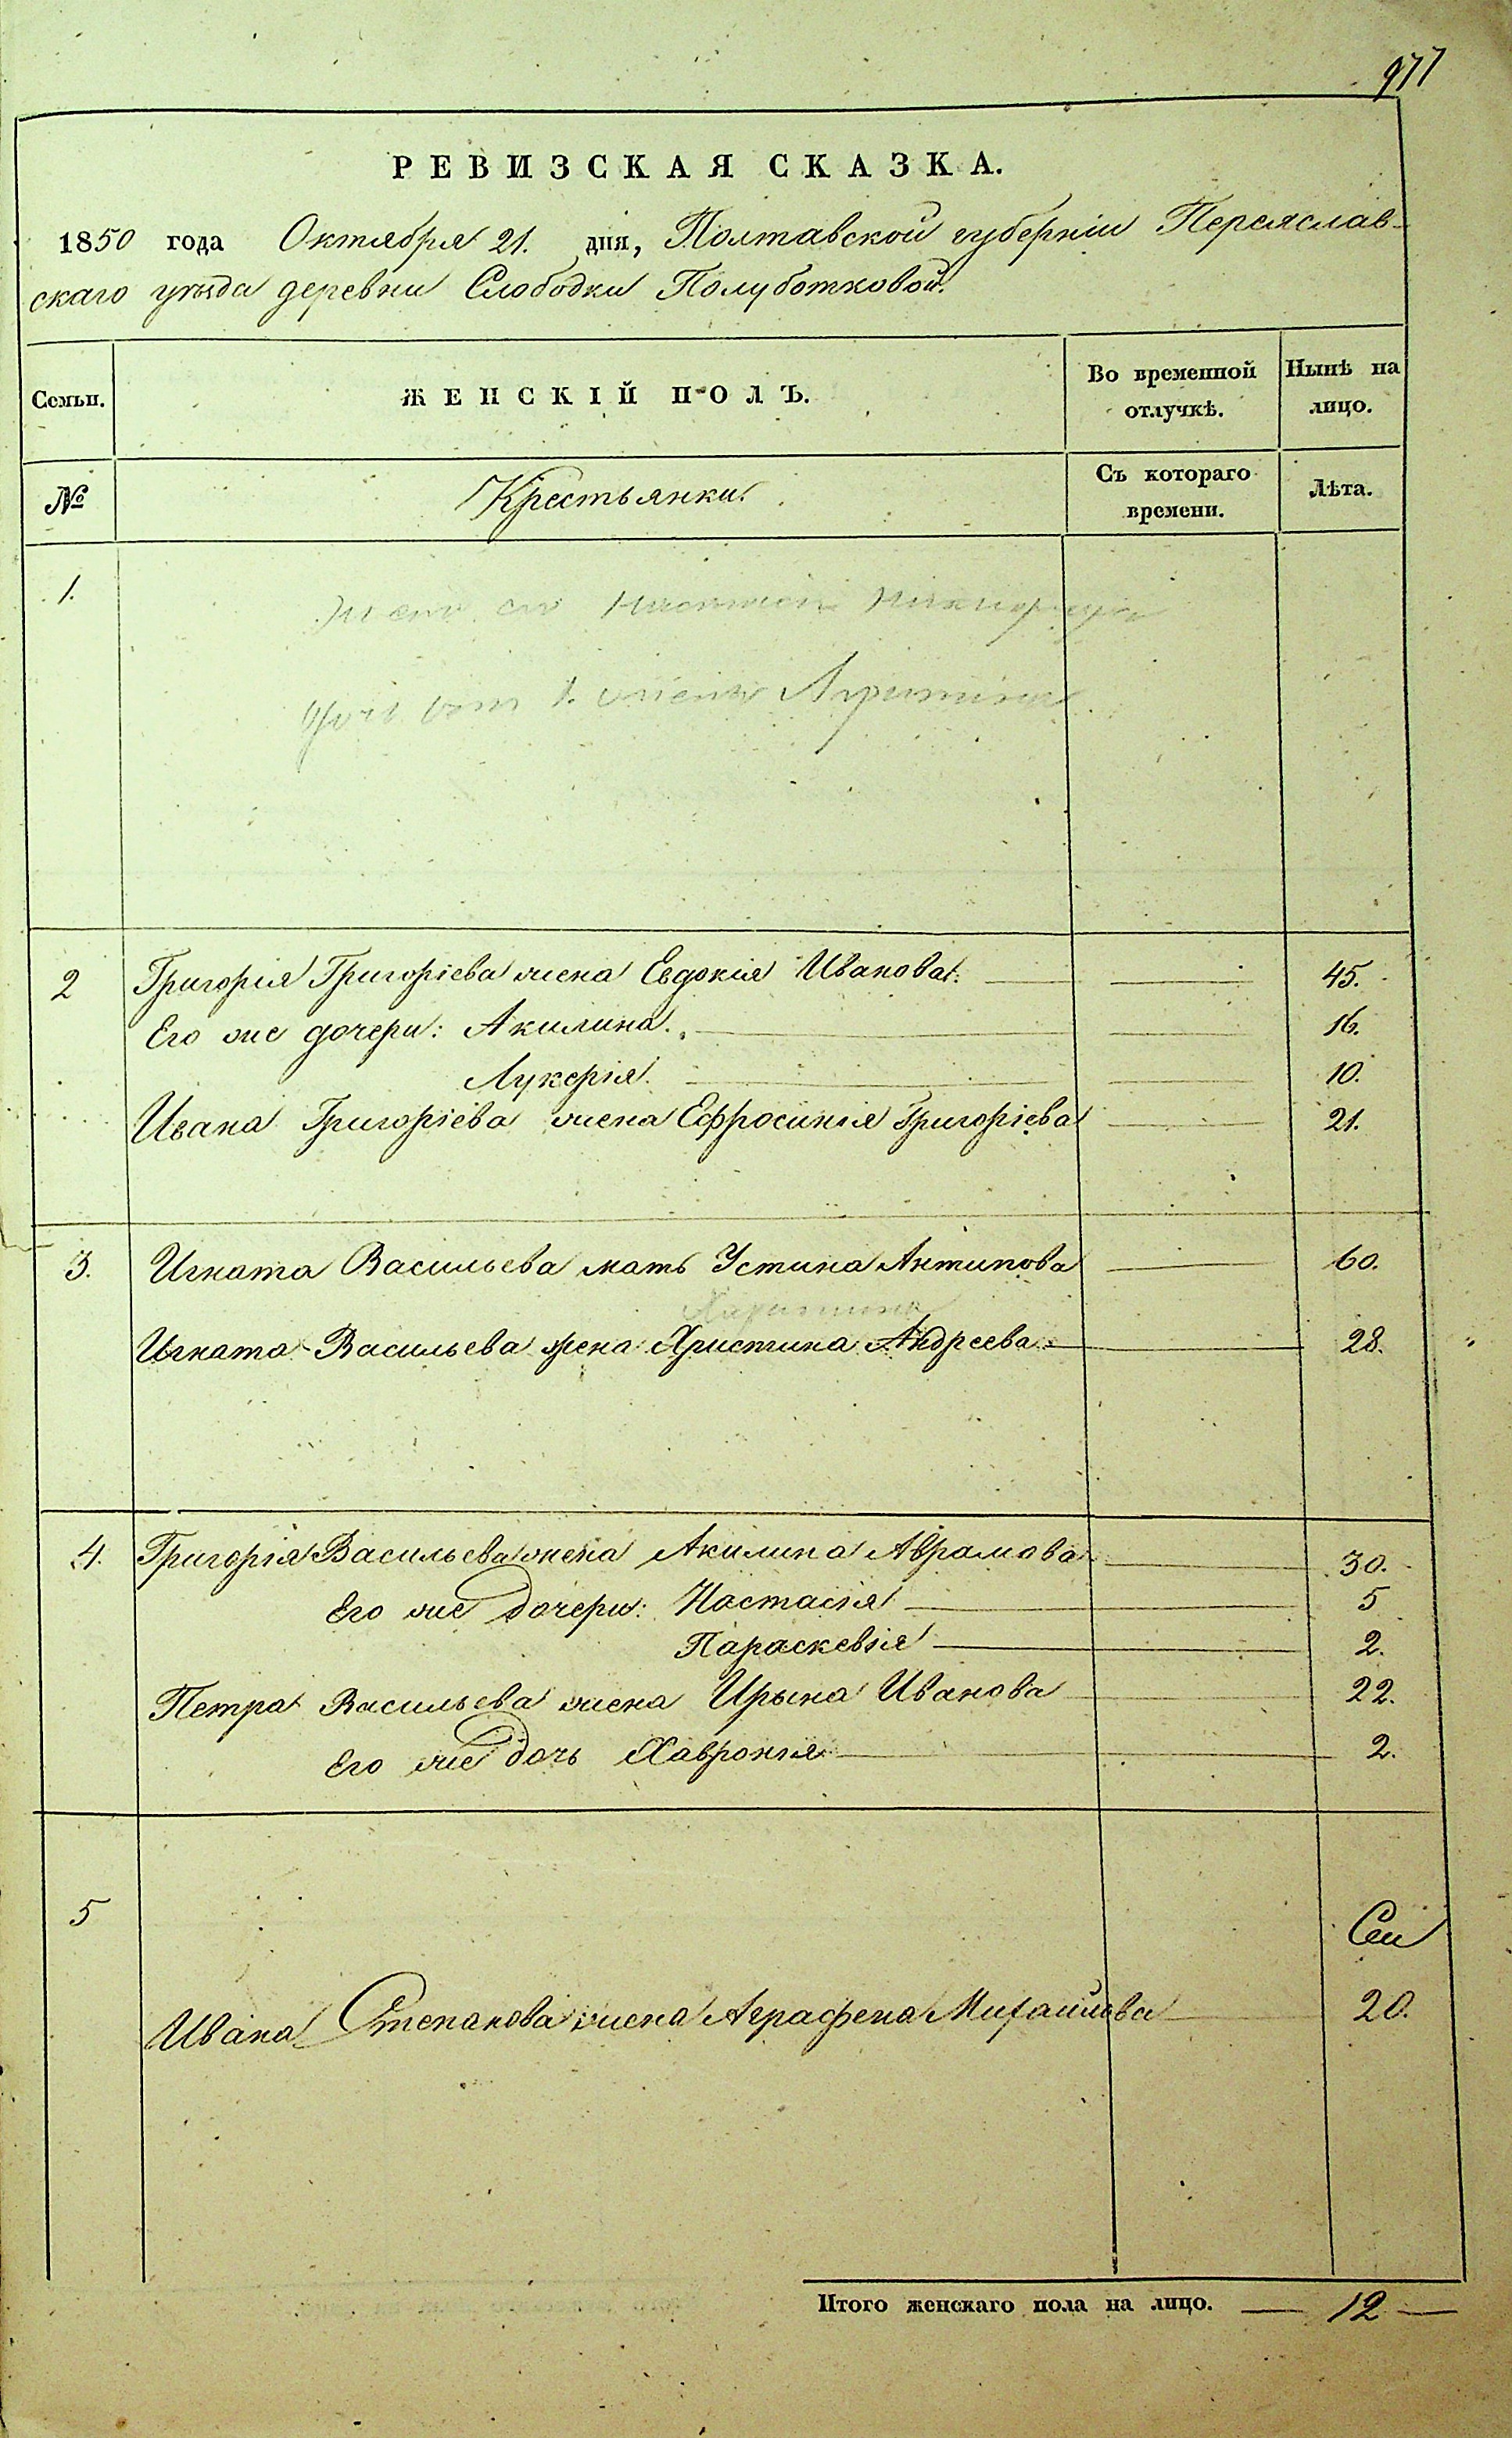 977
РЕВИЗСКАЯ СКАЗКА.
1850 года Октября 21. дня, Полтавской губерніи Переяслав-
скаго уѣзда деревни Слободки Полуботковой.
Семьи. ЖЕНСКІЙ ПОЛЪ. Во временной отлучкѣ. Нынѣ на лицо.
№ Крестьянки. Съ котораго времени. Лѣта.
1.
2 Григорія Григоріева жена Евдокія Иванова. 45.
Его же дочери: Акилина. 16.
Лукерія. 10.
Ивана Григоріева жена Ефросинія Григоріева 21.
3. Игната Васильева мать Устина Антипова 60.
Харитина
Игната Васильева жена Христина Андреева 28.
4. Григорія Васильева жена Акилина Аврамова 30.
Его же дочери: Настасія 5
Параскевія 2.
Петра Васильева жена Ирына Иванова 22.
Его же дочь Хавронія 2.
5
Сеи
Ивана Степанова жена Аграфена Михайлова 20.
Итого женскаго пола на лицо. — 12 —